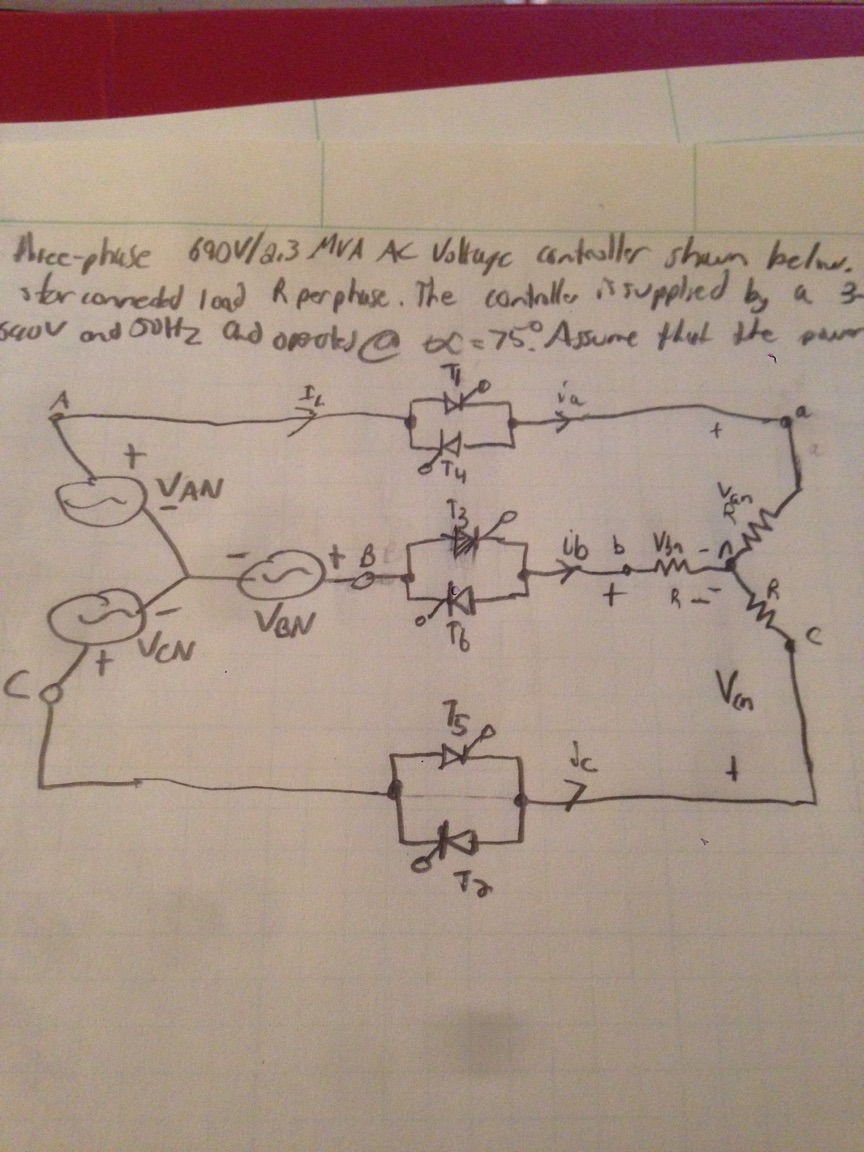 three-phase 690V/2.3 MVA AC Voltage controller shown below.
star connected load R per phase. The controller is supplied by a 3-
690V and 50Hz and operated @ α = 75°. Assume that the power
A
I
T1
ia
a
+
T4
+
VAN
-
Van
R
T3
- + B
ib b Vbn - n
VBN
+ R -
R
T6
-
VCN
+
C
C
Vcn
T5
ic
+
T2